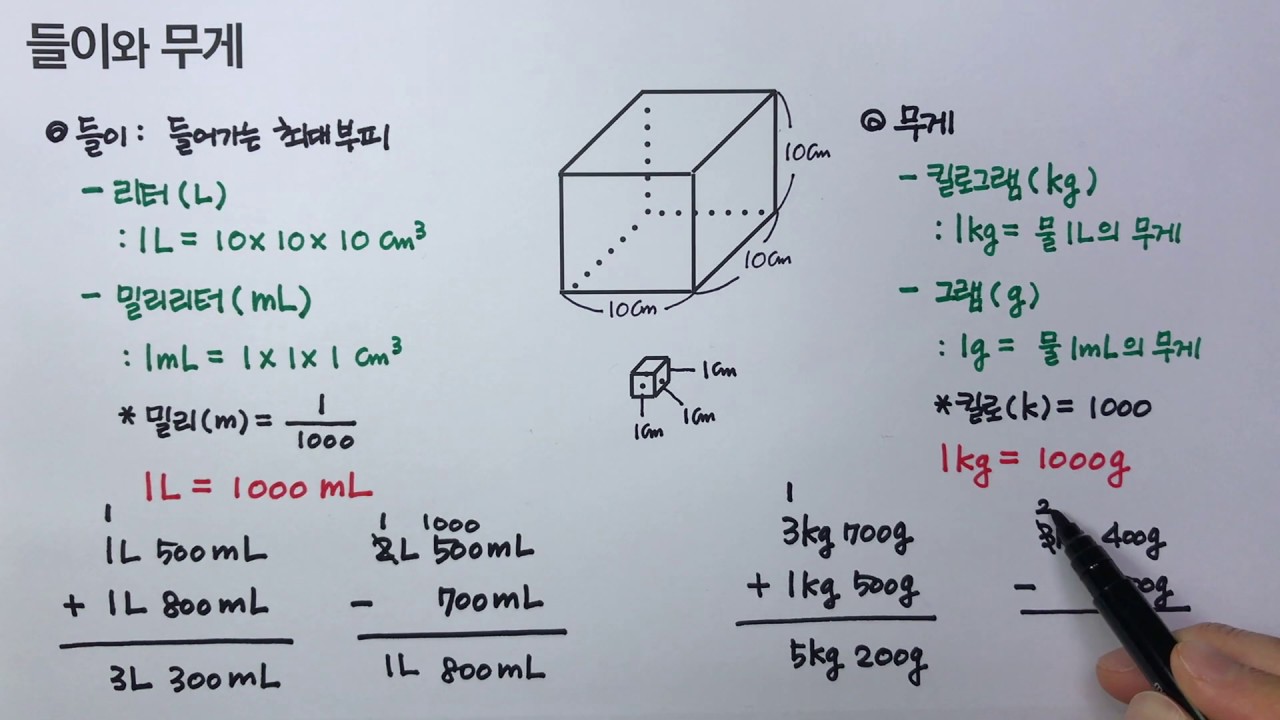 들이와 무게
◎ 들이 : 들어가는 최대부피
- 리터(L)
: 1L = 10 x 10 x 10 cm³
- 밀리리터(mL)
: 1mL = 1 x 1 x 1 cm³
* 밀리(m) = 1/1000
1L = 1000 mL
1
1L 500mL
+ 1L 800mL
3L 300mL
1 1000
2L 500mL
- 700mL
1L 800mL
10cm
10cm
10cm
1cm
1cm
1cm
◎ 무게
- 킬로그램(kg)
: 1kg = 물 1L의 무게
- 그램(g)
: 1g = 물 1mL의 무게
* 킬로(k) = 1000
1kg = 1000g
1
3kg 700g
+ 1kg 500g
5kg 200g
2
3 400g
-